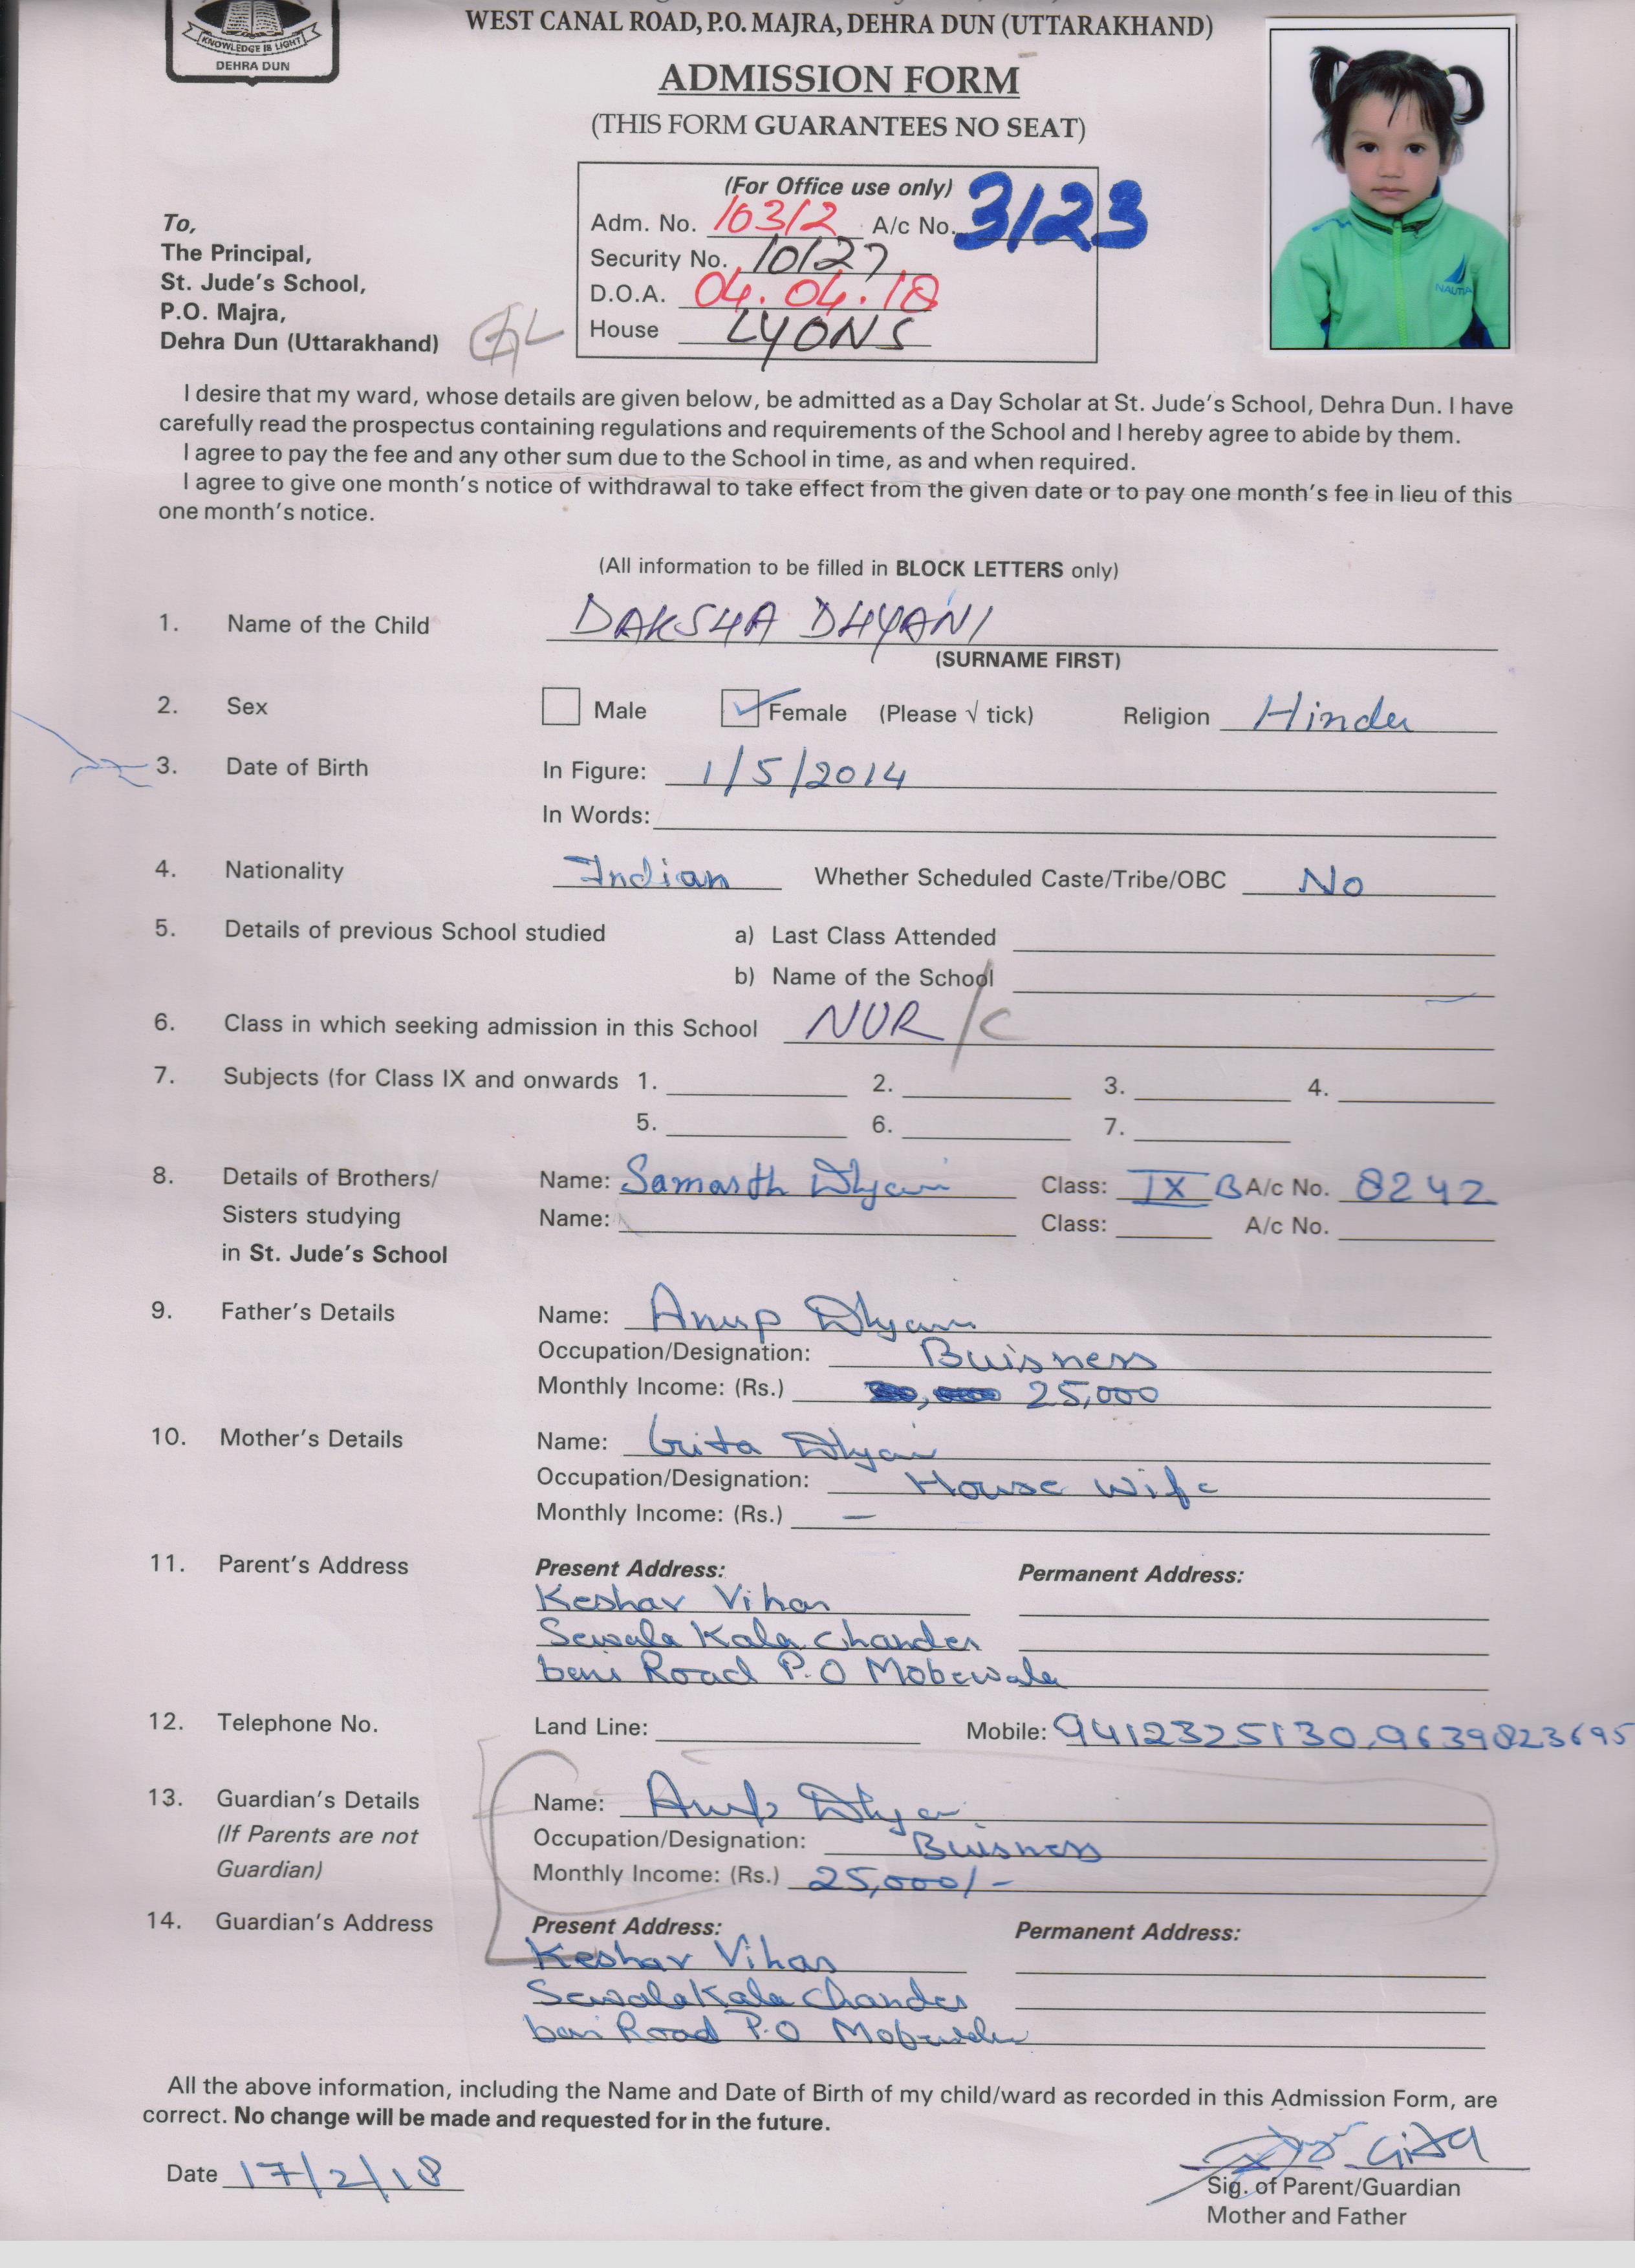 KNOWLEDGE IS LIGHT
DEHRA DUN
WEST CANAL ROAD, P.O. MAJRA, DEHRA DUN (UTTARAKHAND)
ADMISSION FORM
(THIS FORM GUARANTEES NO SEAT)
(For Office use only)
Adm. No. 10312 A/c No. 3123
Security No. 10127
D.O.A. 04.04.18
House LYONS
To,
The Principal,
St. Jude's School,
P.O. Majra,
Dehra Dun (Uttarakhand)
NAUTICA
I desire that my ward, whose details are given below, be admitted as a Day Scholar at St. Jude's School, Dehra Dun. I have
carefully read the prospectus containing regulations and requirements of the School and I hereby agree to abide by them.
I agree to pay the fee and any other sum due to the School in time, as and when required.
I agree to give one month's notice of withdrawal to take effect from the given date or to pay one month's fee in lieu of this
one month's notice.
(All information to be filled in BLOCK LETTERS only)
1. Name of the Child DAKSHA DHYANI
(SURNAME FIRST)
2. Sex Male Female (Please √ tick) Religion Hindu
3. Date of Birth In Figure: 1/5/2014
In Words:
4. Nationality Indian Whether Scheduled Caste/Tribe/OBC No
5. Details of previous School studied a) Last Class Attended
b) Name of the School
6. Class in which seeking admission in this School NUR/C
7. Subjects (for Class IX and onwards 1. 2. 3. 4.
5. 6. 7.
8. Details of Brothers/ Name: Samarth Dhyani Class: IX B A/c No. 8242
Sisters studying Name: Class: A/c No.
in St. Jude's School
9. Father's Details Name: Anup Dhyani
Occupation/Designation: Buisness
Monthly Income: (Rs.) 25,000
10. Mother's Details Name: Gita Dhyani
Occupation/Designation: House Wife
Monthly Income: (Rs.) —
11. Parent's Address Present Address: Permanent Address:
Keshav Vihar
Sewala Kala Chander
bani Road P.O Mobewala
12. Telephone No. Land Line: Mobile: 9412325130, 9639823695
13. Guardian's Details Name: Anup Dhyani
(If Parents are not Occupation/Designation: Buisness
Guardian) Monthly Income: (Rs.) 25,000/-
14. Guardian's Address Present Address: Permanent Address:
Keshav Vihar
Sewala Kala Chander
bani Road P.O Mobewala
All the above information, including the Name and Date of Birth of my child/ward as recorded in this Admission Form, are
correct. No change will be made and requested for in the future.
Date 17/2/18 Gita
Sig. of Parent/Guardian
Mother and Father